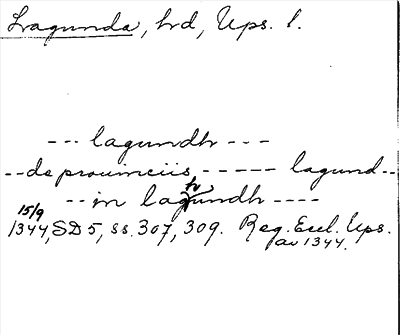 Lagunda, hd, Ups. l.
--- lagundh ---
-- de prouinciis ----- lagund --
-- in lagundh ----
15/9
1344, SD 5, ss. 307, 309. Reg. Eccl. Ups.
av 1344.